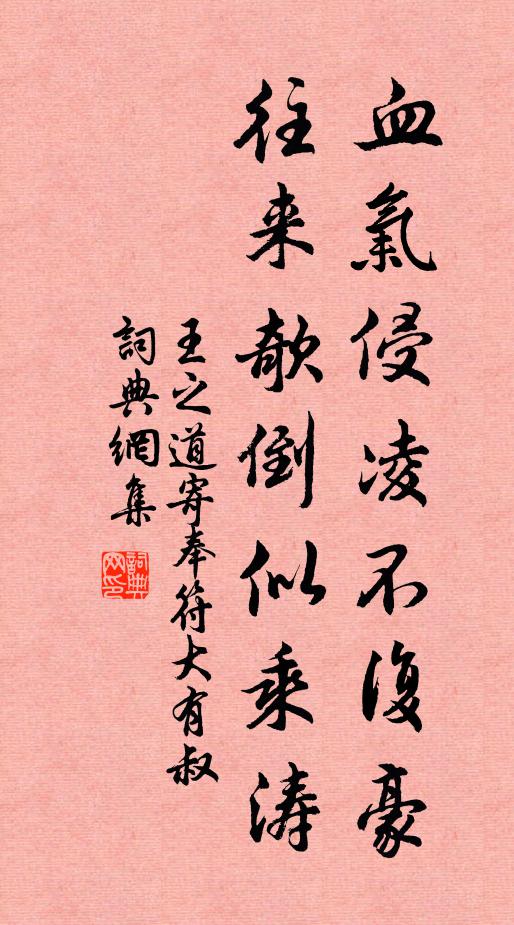 血氣侵凌不復豪
往来欹倒似乘涛
王之道寄奉符大有叔
詞典網集
詞典网印